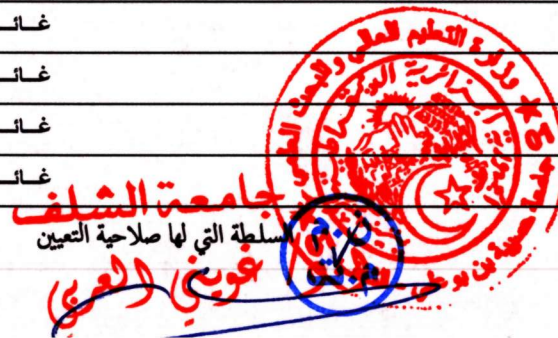 غائـ
غائـ
غائـ
غائـ
وزارة التعليم العالي والبحث العلمي
جامعة حسيبة بن بوعلي
جامعة الشلف
السلطة التي لها صلاحية التعيين
غويني العربي